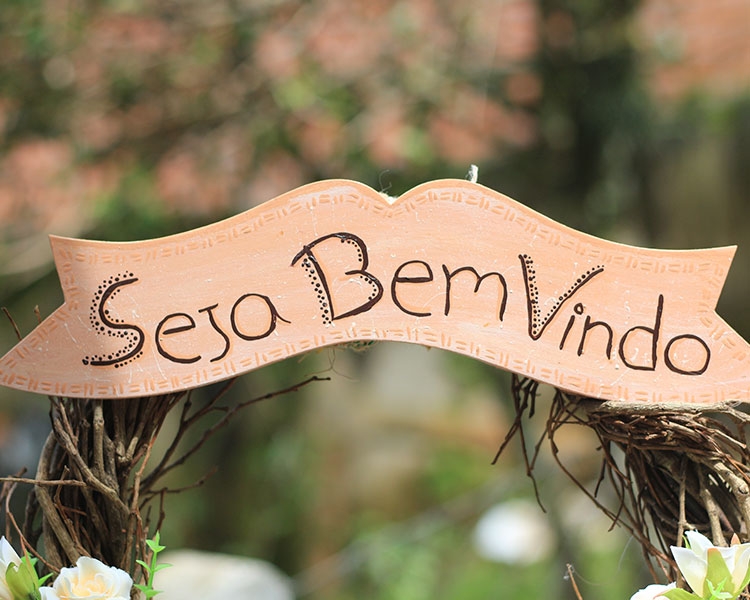 Seja Bem Vindo